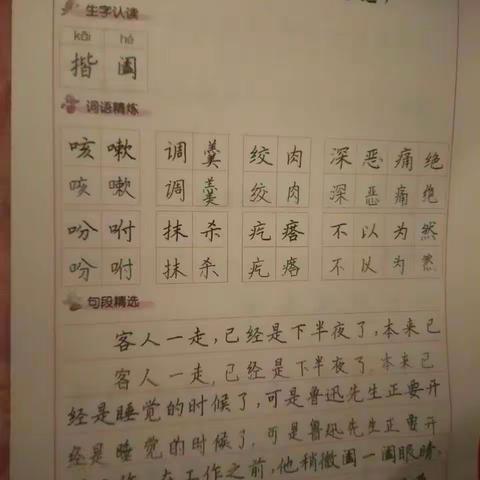 生字认读
kāi hé
揩 阖
词语精炼
咳嗽 调羹 绞肉 深恶痛绝
咳嗽 调羹 绞肉 深恶痛绝
吩咐 抹杀 疙瘩 不以为然
吩咐 抹杀 疙瘩 不以为然
句段精选
客人一走，已经是下半夜了，本来已
客人一走，已经是下半夜了，本来已
经是睡觉的时候了，可是鲁迅先生正要开
经是睡觉的时候了，可是鲁迅先生正要开
工作之前，他稍微阖一阖眼睛，